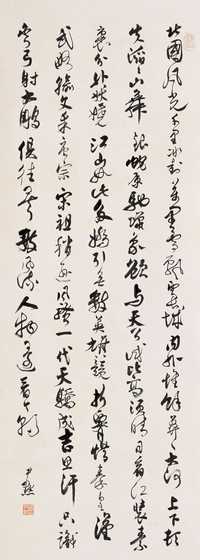 北國風光千里冰封萬里雪飄望長城內外惟餘莽莽大河上下頓
失滔滔山舞銀蛇原馳蠟象欲与天公試比高須晴日看紅裝素
裹分外妖嬈江山如此多嬌引無數英雄競折腰惜秦皇漢
武略輸文采唐宗宋祖稍遜風騷一代天驕成吉思汗只識
彎弓射大鵰俱往矣數風流人物還看今朝
尹默